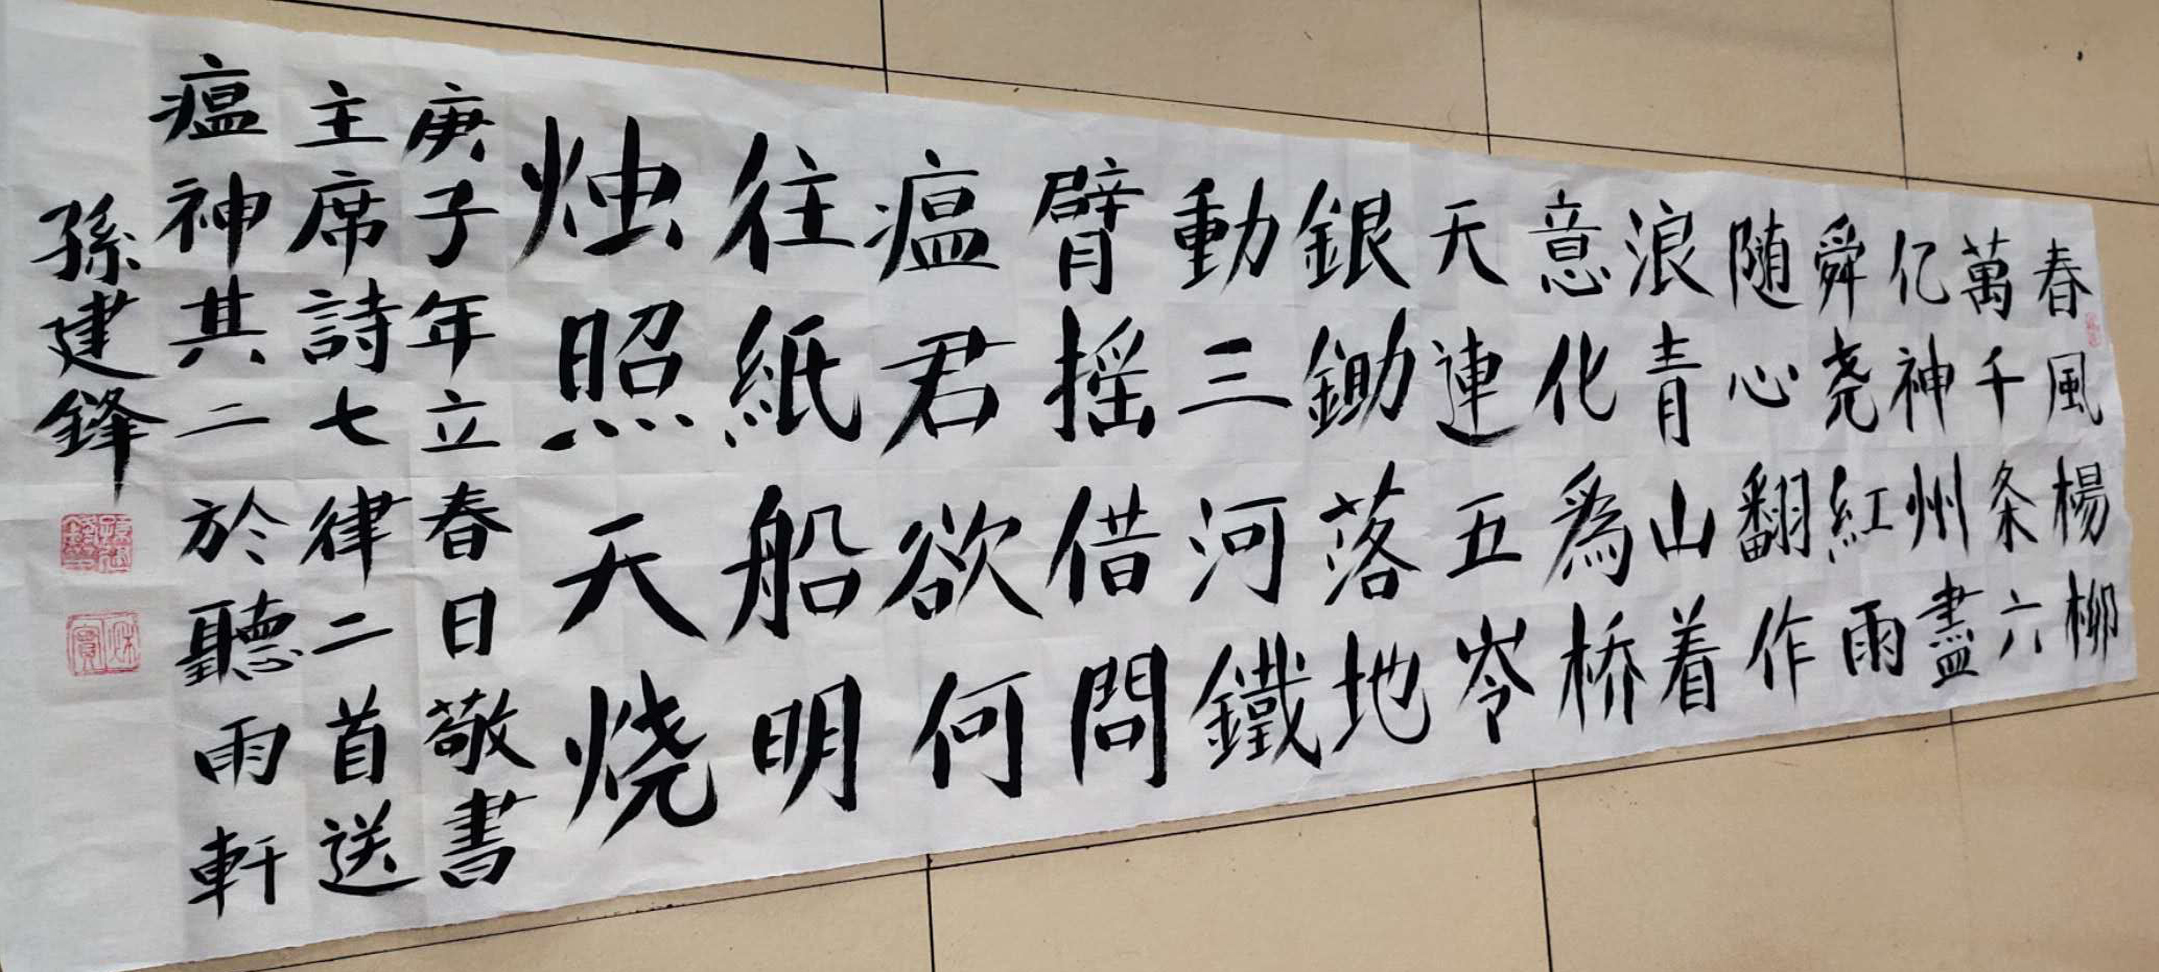 春風楊柳
萬千条六
亿神州盡
舜尧紅雨
随心翻作
浪青山着
意化為桥
天連五岺
銀鋤落地
動三河鐵
臂摇借問
瘟君欲何
往紙船明
烛照天烧
庚子年立春日敬書
主席詩七律二首送
瘟神其二於聽雨軒
孫建鋒